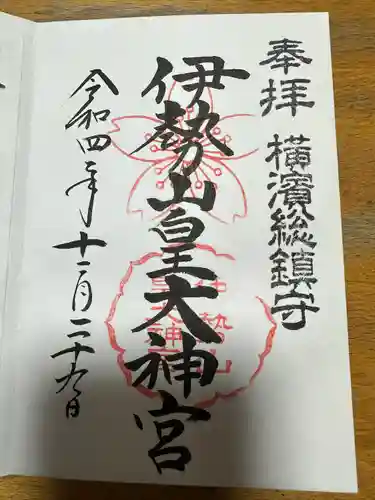 奉拝 横濱総鎮守
伊勢山皇大神宮
令和四年十一月二十九日
伊勢山皇大神宮